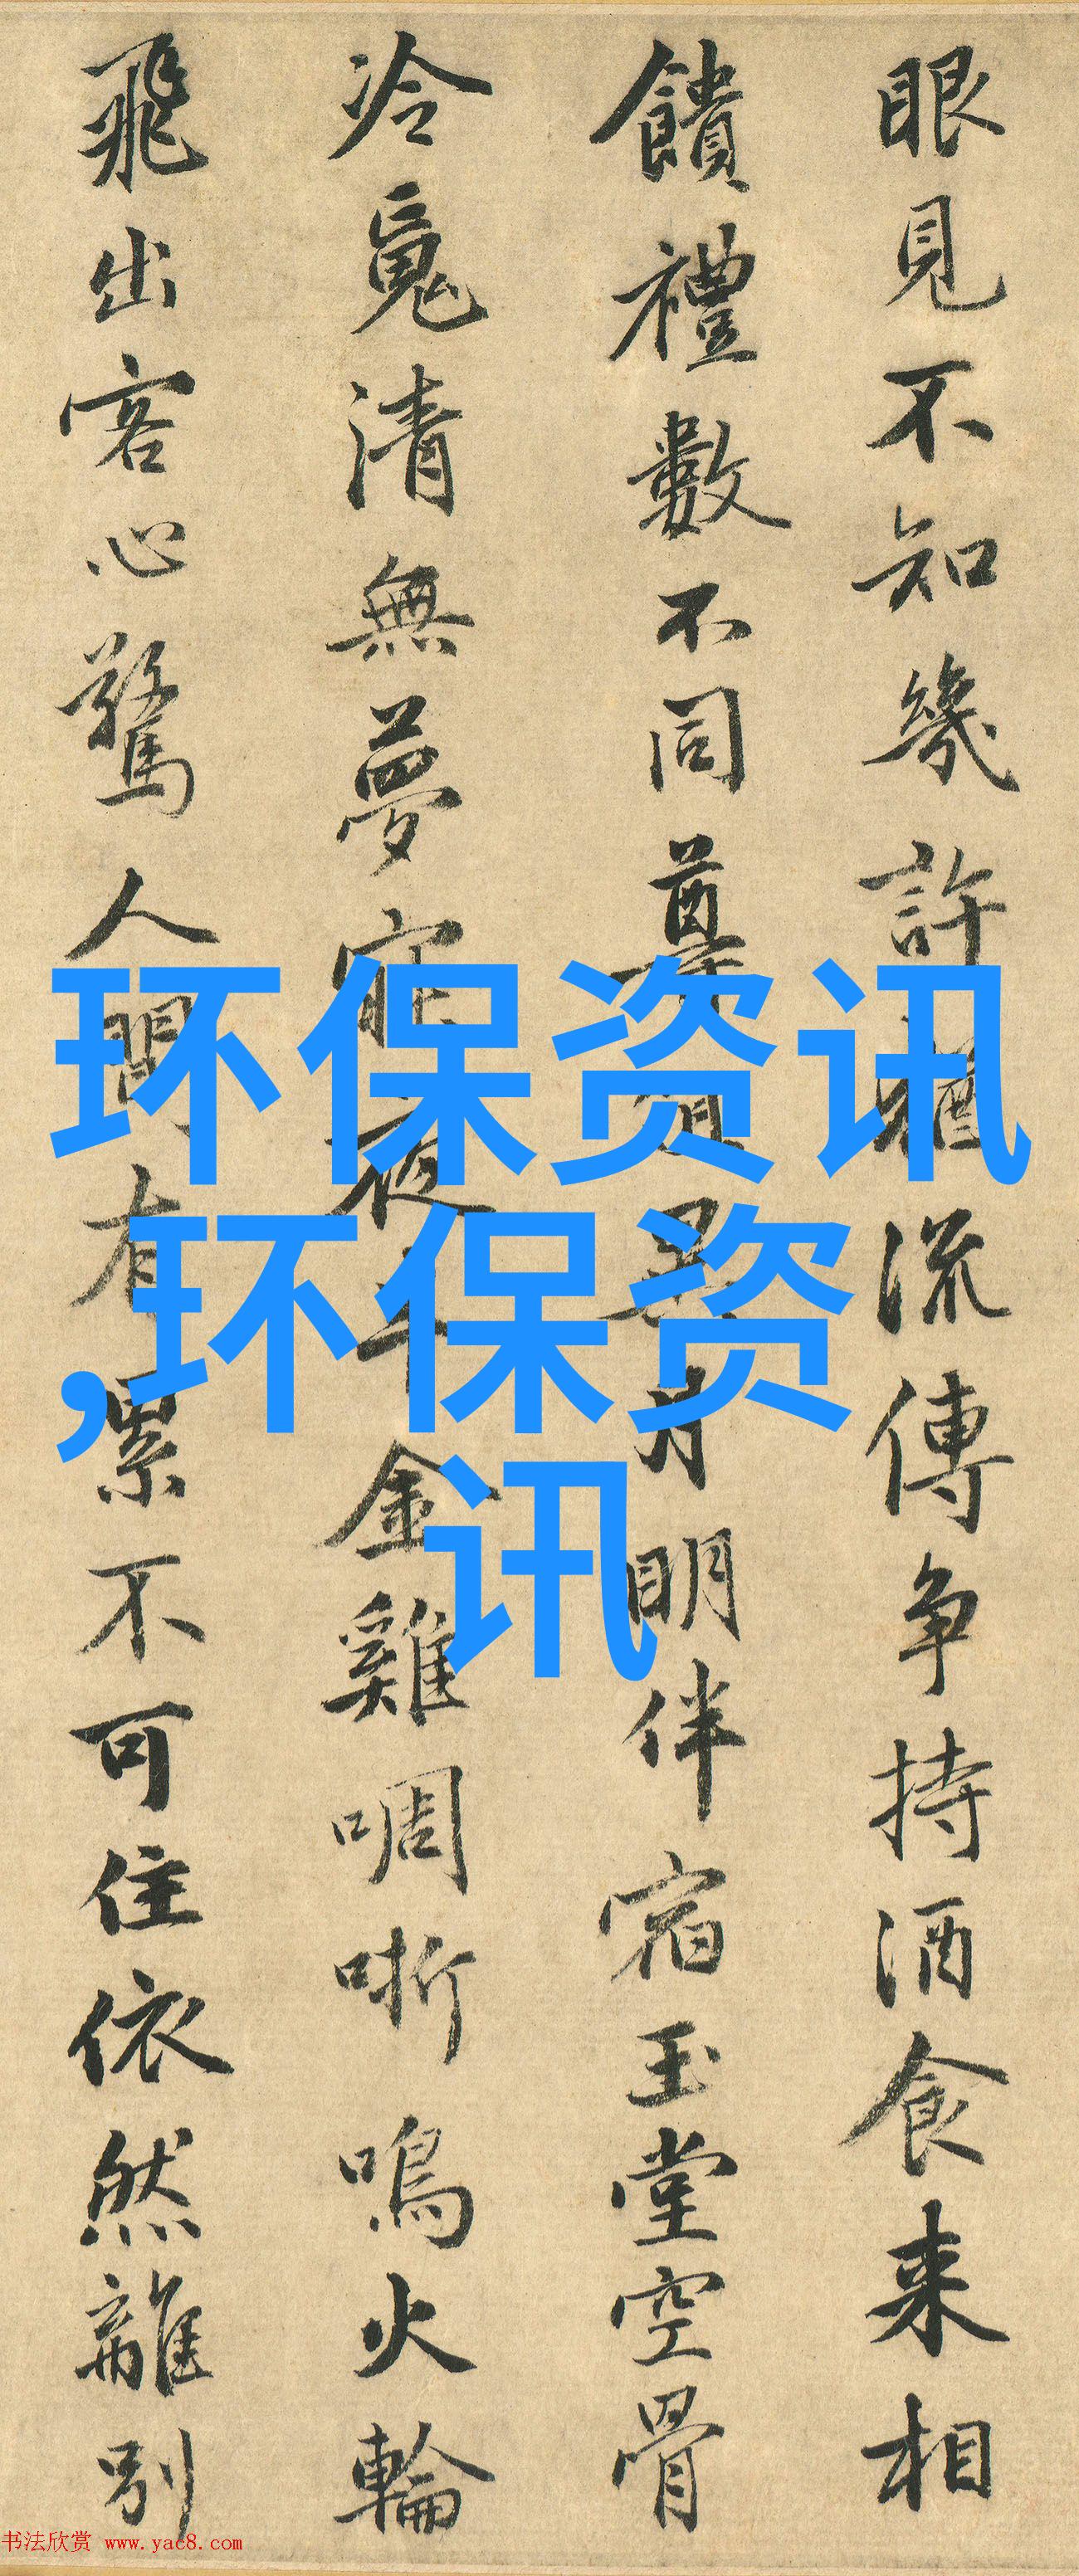 眼見不知幾許猶流傳争持酒食来相
饋禮數不同尊俎異月明伴宿玉堂空骨
冷魂清無夢寐夜半金雞啁哳鳴火輪
飛出客心驚人間有累不可住依然離别
环保资讯
,环保资
讯
书法欣赏 www.yac8.com